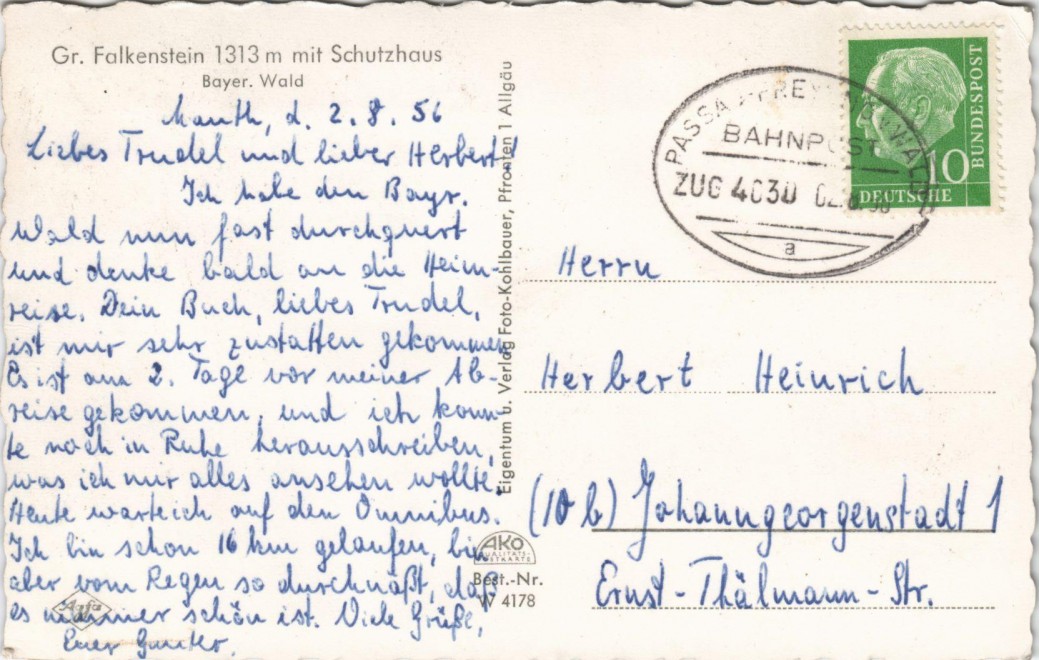 Gr. Falkenstein 1313 m mit Schutzhaus
Bayer. Wald
Mauth, d. 2.8.56
Liebes Trudel und lieber Herbert!
Ich habe den Bayr.
Wald nun fast durchquert
und denke bald an die Heim-
reise. Dein Buch, liebes Trudel,
ist mir sehr zustatten gekommen.
Es ist am 2. Tage vor meiner Ab-
reise gekommen, und ich konn-
te noch in Ruhe herausschreiben,
was ich mir alles ansehen wollte.
Heute warte ich auf den Omnibus.
Ich bin schon 16 km gelaufen, bin
aber vom Regen so durchnäßt, daß
es nimmer schön ist. Viele Grüße,
Euer
Agfa
Eigentum u. Verlag Foto-Kohlbauer, Pfronten 1 Allgäu
AKO
QUALITÄTS-
POSTKARTE
Best.-Nr.
W 4178
PASSA
BAHNPOST
ZUG 4030 02.8.56
a
10
DEUTSCHE
BUNDESPOST
Herrn
Herbert Heinrich
(10 b) Johanngeorgenstadt 1
Ernst-Thälmann-Str.